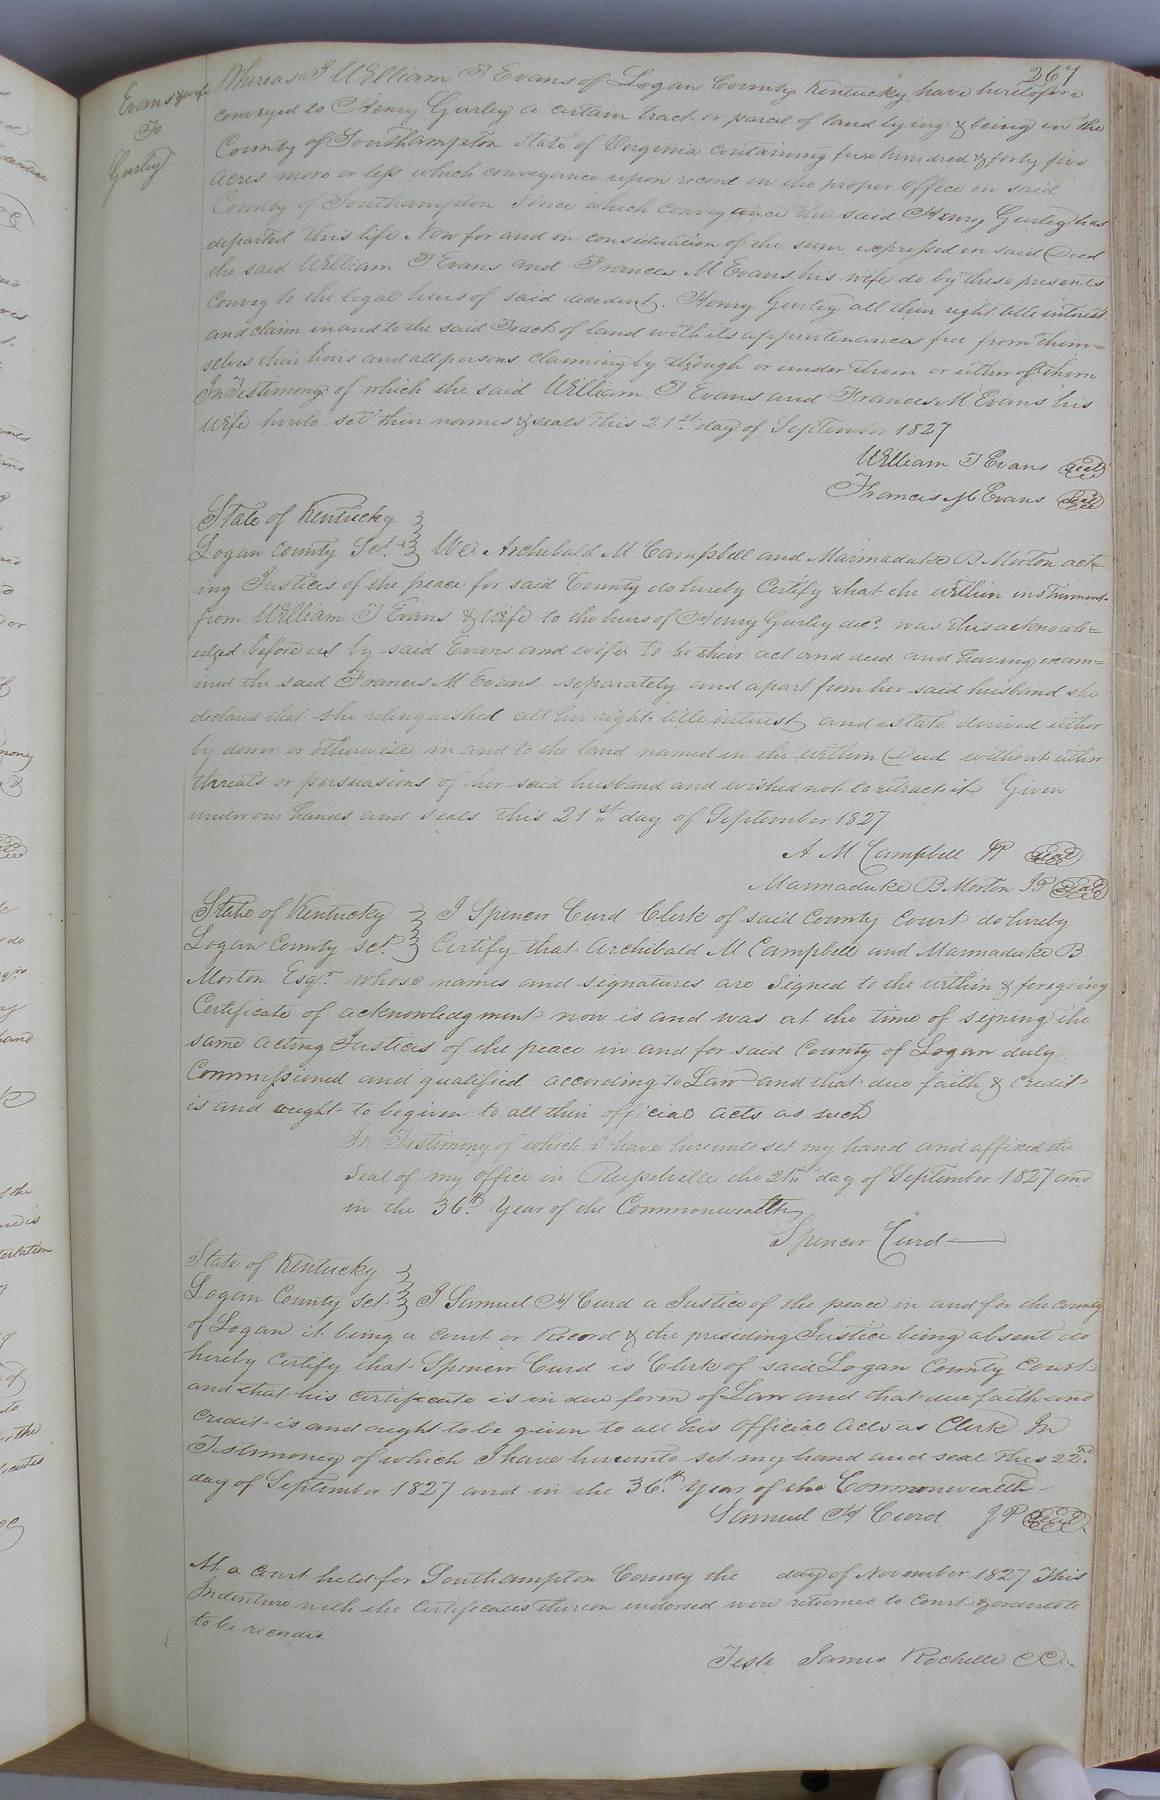 267
Evans & wife
To
Gurley
Whereas I William T Evans of Logan County Kentucky have heretofore
conveyed to Henry Gurley a certain tract or parcel of land lying & being in the
County of Southampton State of Virginia containing five hundred & forty five
acres more or less which conveyance upon record in the proper office in said
County of Southampton since which conveyance the said Henry Gurley has
departed this life Now for and in consideration of the sum expressed in said Deed
the said William T Evans and Frances M Evans his wife do by these presents
convey to the legal heirs of said decedent Henry Gurley all their right title interest
and claim in and to the said Tract of land with its appurtenances free from them=
selves their heirs and all persons claiming by through or under them or either of them
In Testimony of which the said William T Evans and Frances M Evans his
wife hereto set their names & seals this 21st day of September 1827
William T Evans Seal
Francis M Evans Seal
State of Kentucky
Logan County Sct. We Archibald M Campbell and Marmaduke B Morton act-
ing Justices of the peace for said County do hereby Certify that the within instrument
from William T Evans & Wife to the heirs of Henry Gurley decd. was this acknowle=
edged before us by said Evans and wife to be their act and deed and having exam=
ined the said Frances M Evans separately and apart from her said husband she
declared that she relinquished all her right title interest and estate derived either
by dower or otherwise in and to the land named in the within Deed without either
threats or persuasions of her said husband and wished not to retract it Given
under our hands and seals this 21st day of September 1827
A M Campbell JP Seal
Marmaduke B Morton JP Seal
State of Kentucky
Logan County sct. I Spencer Curd Clerk of said County Court do hereby
Certify that Archibald M Campbell and Marmaduke B
Morton Esqr. whose names and signatures are signed to the within & foregoing
Certificate of acknowledgment now is and was at the time of signing the
same acting Justices of the peace in and for said County of Logan duly
Commissioned and qualified according to Law and that due faith & credit
is and ought to be given to all their official acts as such
In Testimony of which I have hereunto set my hand and affixed the
Seal of my office in Russelville the 21st day of September 1827 and
in the 36th Year of the Commonwealth
Spencer Curd
State of Kentucky
Logan County sct. I Samuel H Curd a Justice of the peace in and for the county
of Logan it being a court or Record & the presiding Justice being absent do
hereby certify that Spencer Curd is Clerk of said Logan County Court
and that his certificate is in due form of Law and that due faith and
credit is and ought to be given to all his official acts as Clerk In
Testimony of which I have hereunto set my hand and seal this 22nd
day of September 1827 and in the 36th Year of the Commonwealth
Samuel H Curd JP Seal
At a court held for Southampton County the day of November 1827 This
Indenture with the Certificates thereon endorsed were returned to Court & ordered to
to be recorded
Teste James Rochelle CC